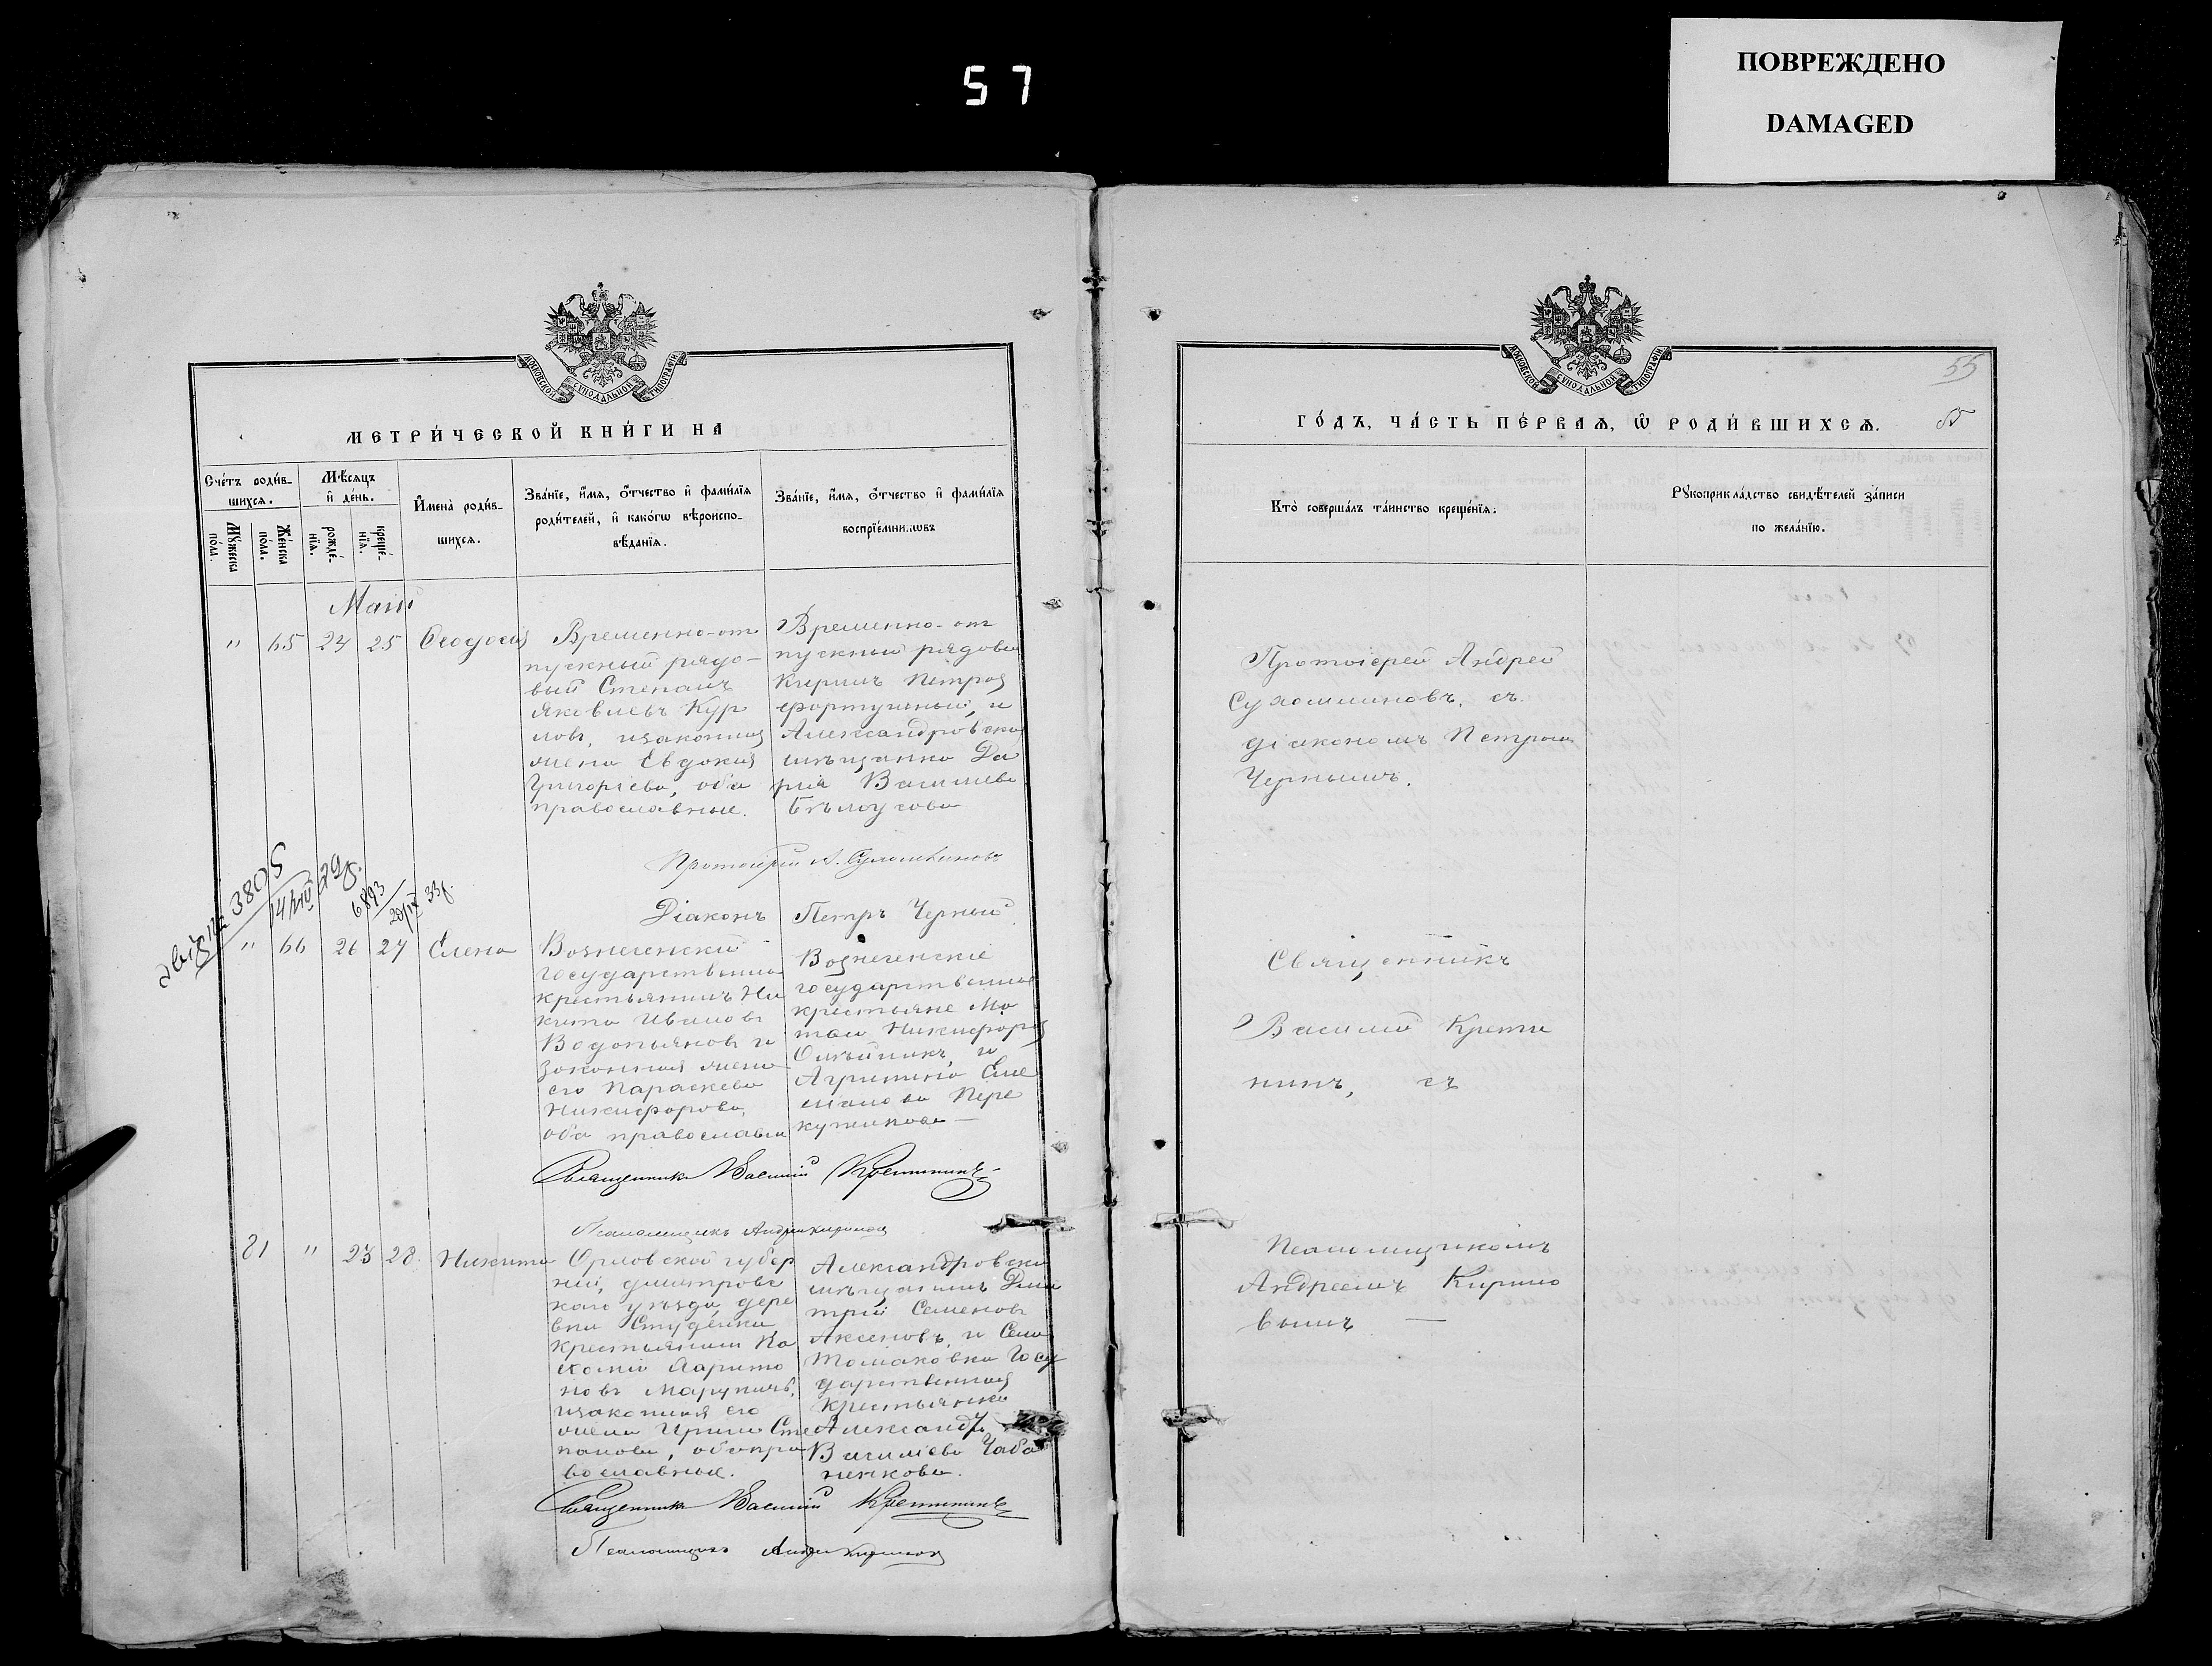 57
ПОВРЕЖДЕНО
DAMAGED
МОСКОВСКОЙ СѴНОДАЛЬНОЙ ТИПОГРАФІИ
МЕТРИ́ЧЕСКОЙ КНИ́ГИ НА
Сче́тъ роди́в-
шихсѧ.
Мѣ́сѧцъ
и҆ де́нь.
Мꙋ́жеска
по́ла.
Же́нска
по́ла.
рожде́-
нїѧ.
креще́-
нїѧ.
И҆мена̀ роди́в-
шихсѧ.
Зва́нїе, и҆́мѧ, ѻ҆́тчество и҆ фами́лїѧ
роди́телей, и҆ како́гѡ вѣроиспо-
вѣ́данїѧ.
Зва́нїе, и҆́мѧ, ѻ҆́тчество и҆ фами́лїѧ
воспрїе́мникѡвъ
Маій
" 65 24 25 Ѳеодосія
Временно-от
пускный рядо-
вый Степанъ
Яковлевъ Кур
ловъ, изаконная
жена Евдокия
Григоріева, оба
православные.
Временно-от
пускный рядовой
Кирилъ Петровъ
фортунный, и
Александровская
мѣщанка Да
рія Васильева
Бѣлоусова
Протоіерей А. Сухомлиновъ
Діаконъ Петръ Черный
3805
14/VIII 29р.
6893
20/IX 33р.
" 66 26 27 Елена
Вознесенский
государственный
крестьянинъ Ни
кита Ивановъ
Водопьяновъ и
законная жена
его Параскева
Никифорова,
оба православные
Вознесенские
государственные
крестьяне
Никифоровъ
Олѣйникъ, и
Агрипина Еме
льянова Пере
Священникъ Василій Кретининъ
Псаломщикъ Андрей Кириловъ
81 " 23 28 Никита
Орловской губер
ніи, дмитровс
каго уѣзда, дере
вни Студенки
крестьянинъ
Харито
новъ
изаконная его
жена Ирина Сте
панова, оба пра
вославные.
Александровский
мѣщанинъ Дми
трій Семеновъ
Аксеновъ, и Села
Томаковки Госу
дарственная
крестьянка
Александра
Василіева Чаба
ненкова.
Священникъ Василій Кретининъ
Псаломщикъ Андрей Кириловъ
МОСКОВСКОЙ СѴНОДАЛЬНОЙ ТИПОГРАФІИ
55
ГО́ДЪ, ЧА́СТЬ ПЕ́РВАѦ, Ѡ҆ РОДИ́ВШИХСѦ.
55
Кто̀ соверша́лъ та́инство креще́нїѧ:
Рꙋкоприкла́дство свидѣ́телей за́писи
по жела́нїю.
Протоіерей Андрей
Сухомлиновъ, съ
діакономъ Петромъ
Чернымъ.
Священникъ
Василий Крети
нинъ, съ
Псаломщикомъ
Андреемъ Кирило
вымъ —